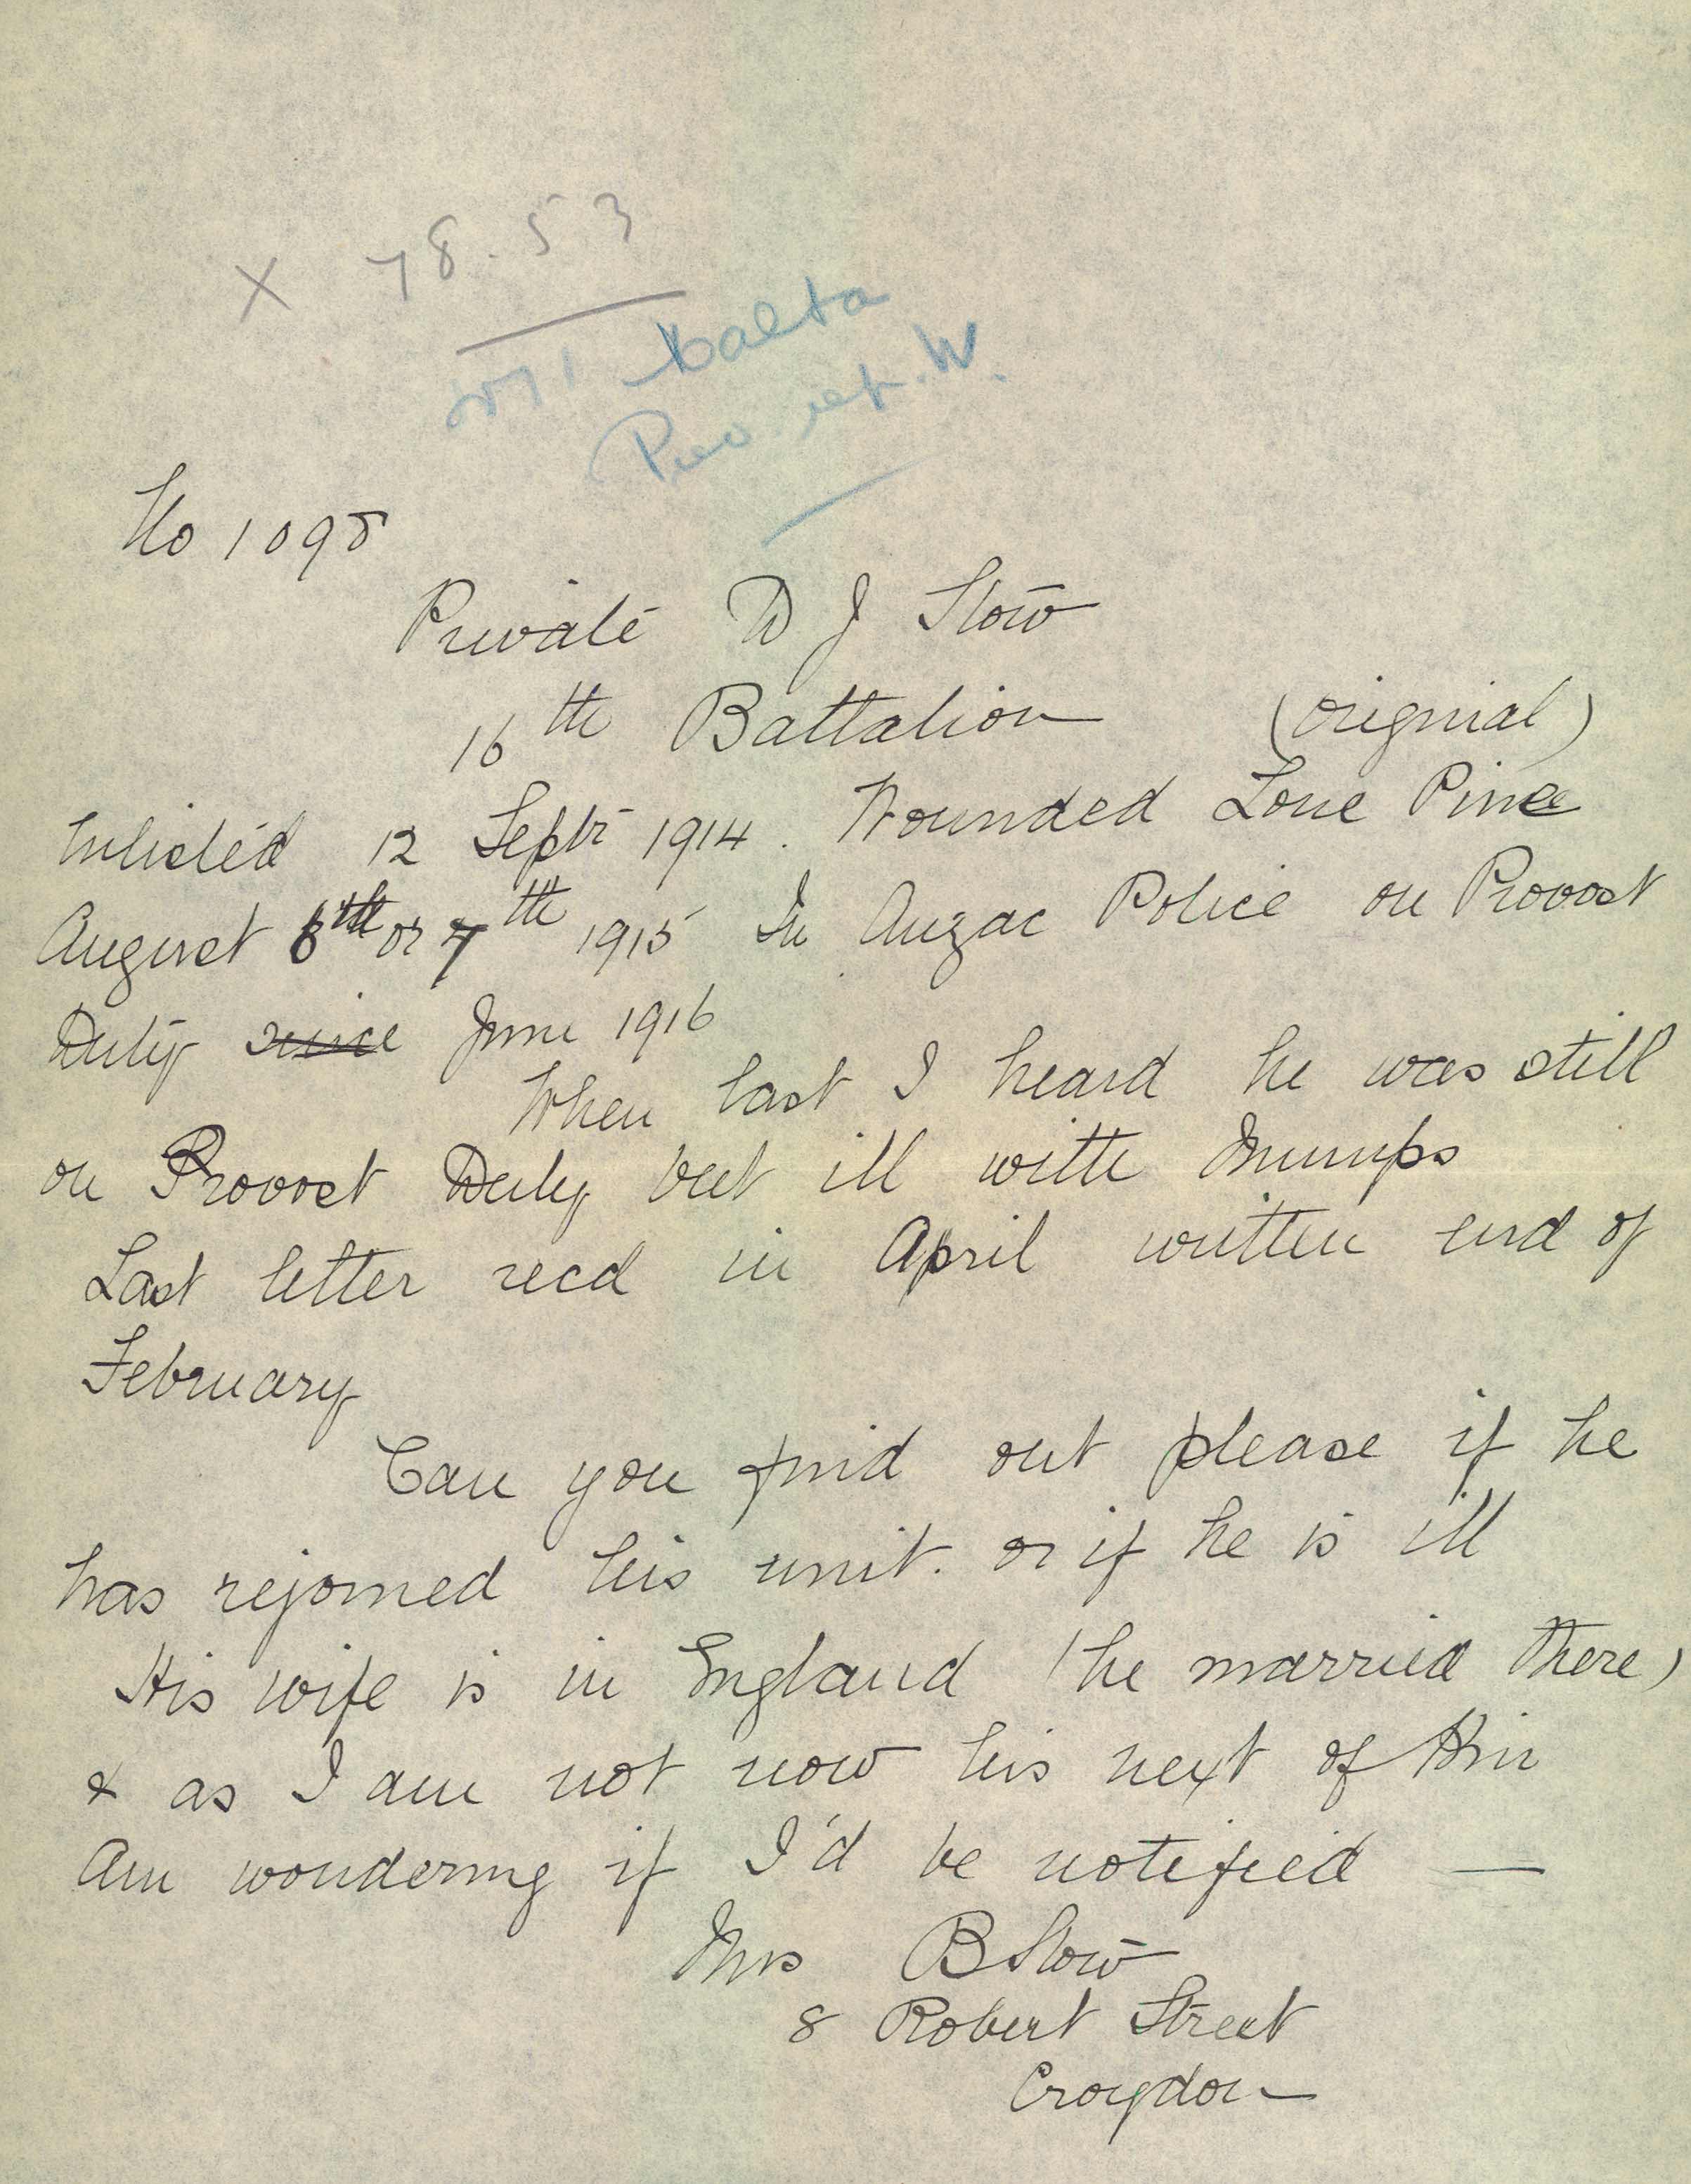 X 78.53
Malta
W.
No 1098
Private D J Stow
16th Battalion (original)
Enlisted 12 Septr 1914. Wounded Lone Pine
August 6th or 7th 1915 In Anzac Police on Provost
Duty since June 1916
When last I heard he was still
on Provost Duty but ill with Mumps
Last letter recd in April written end of
February
Can you find out please if he
has rejoined his unit. or if he is ill
His wife is in England (he married there)
& as I am not now his next of Kin
Am wondering if I'd be notified —
Mrs B Stow
8 Robert Street
Croydon